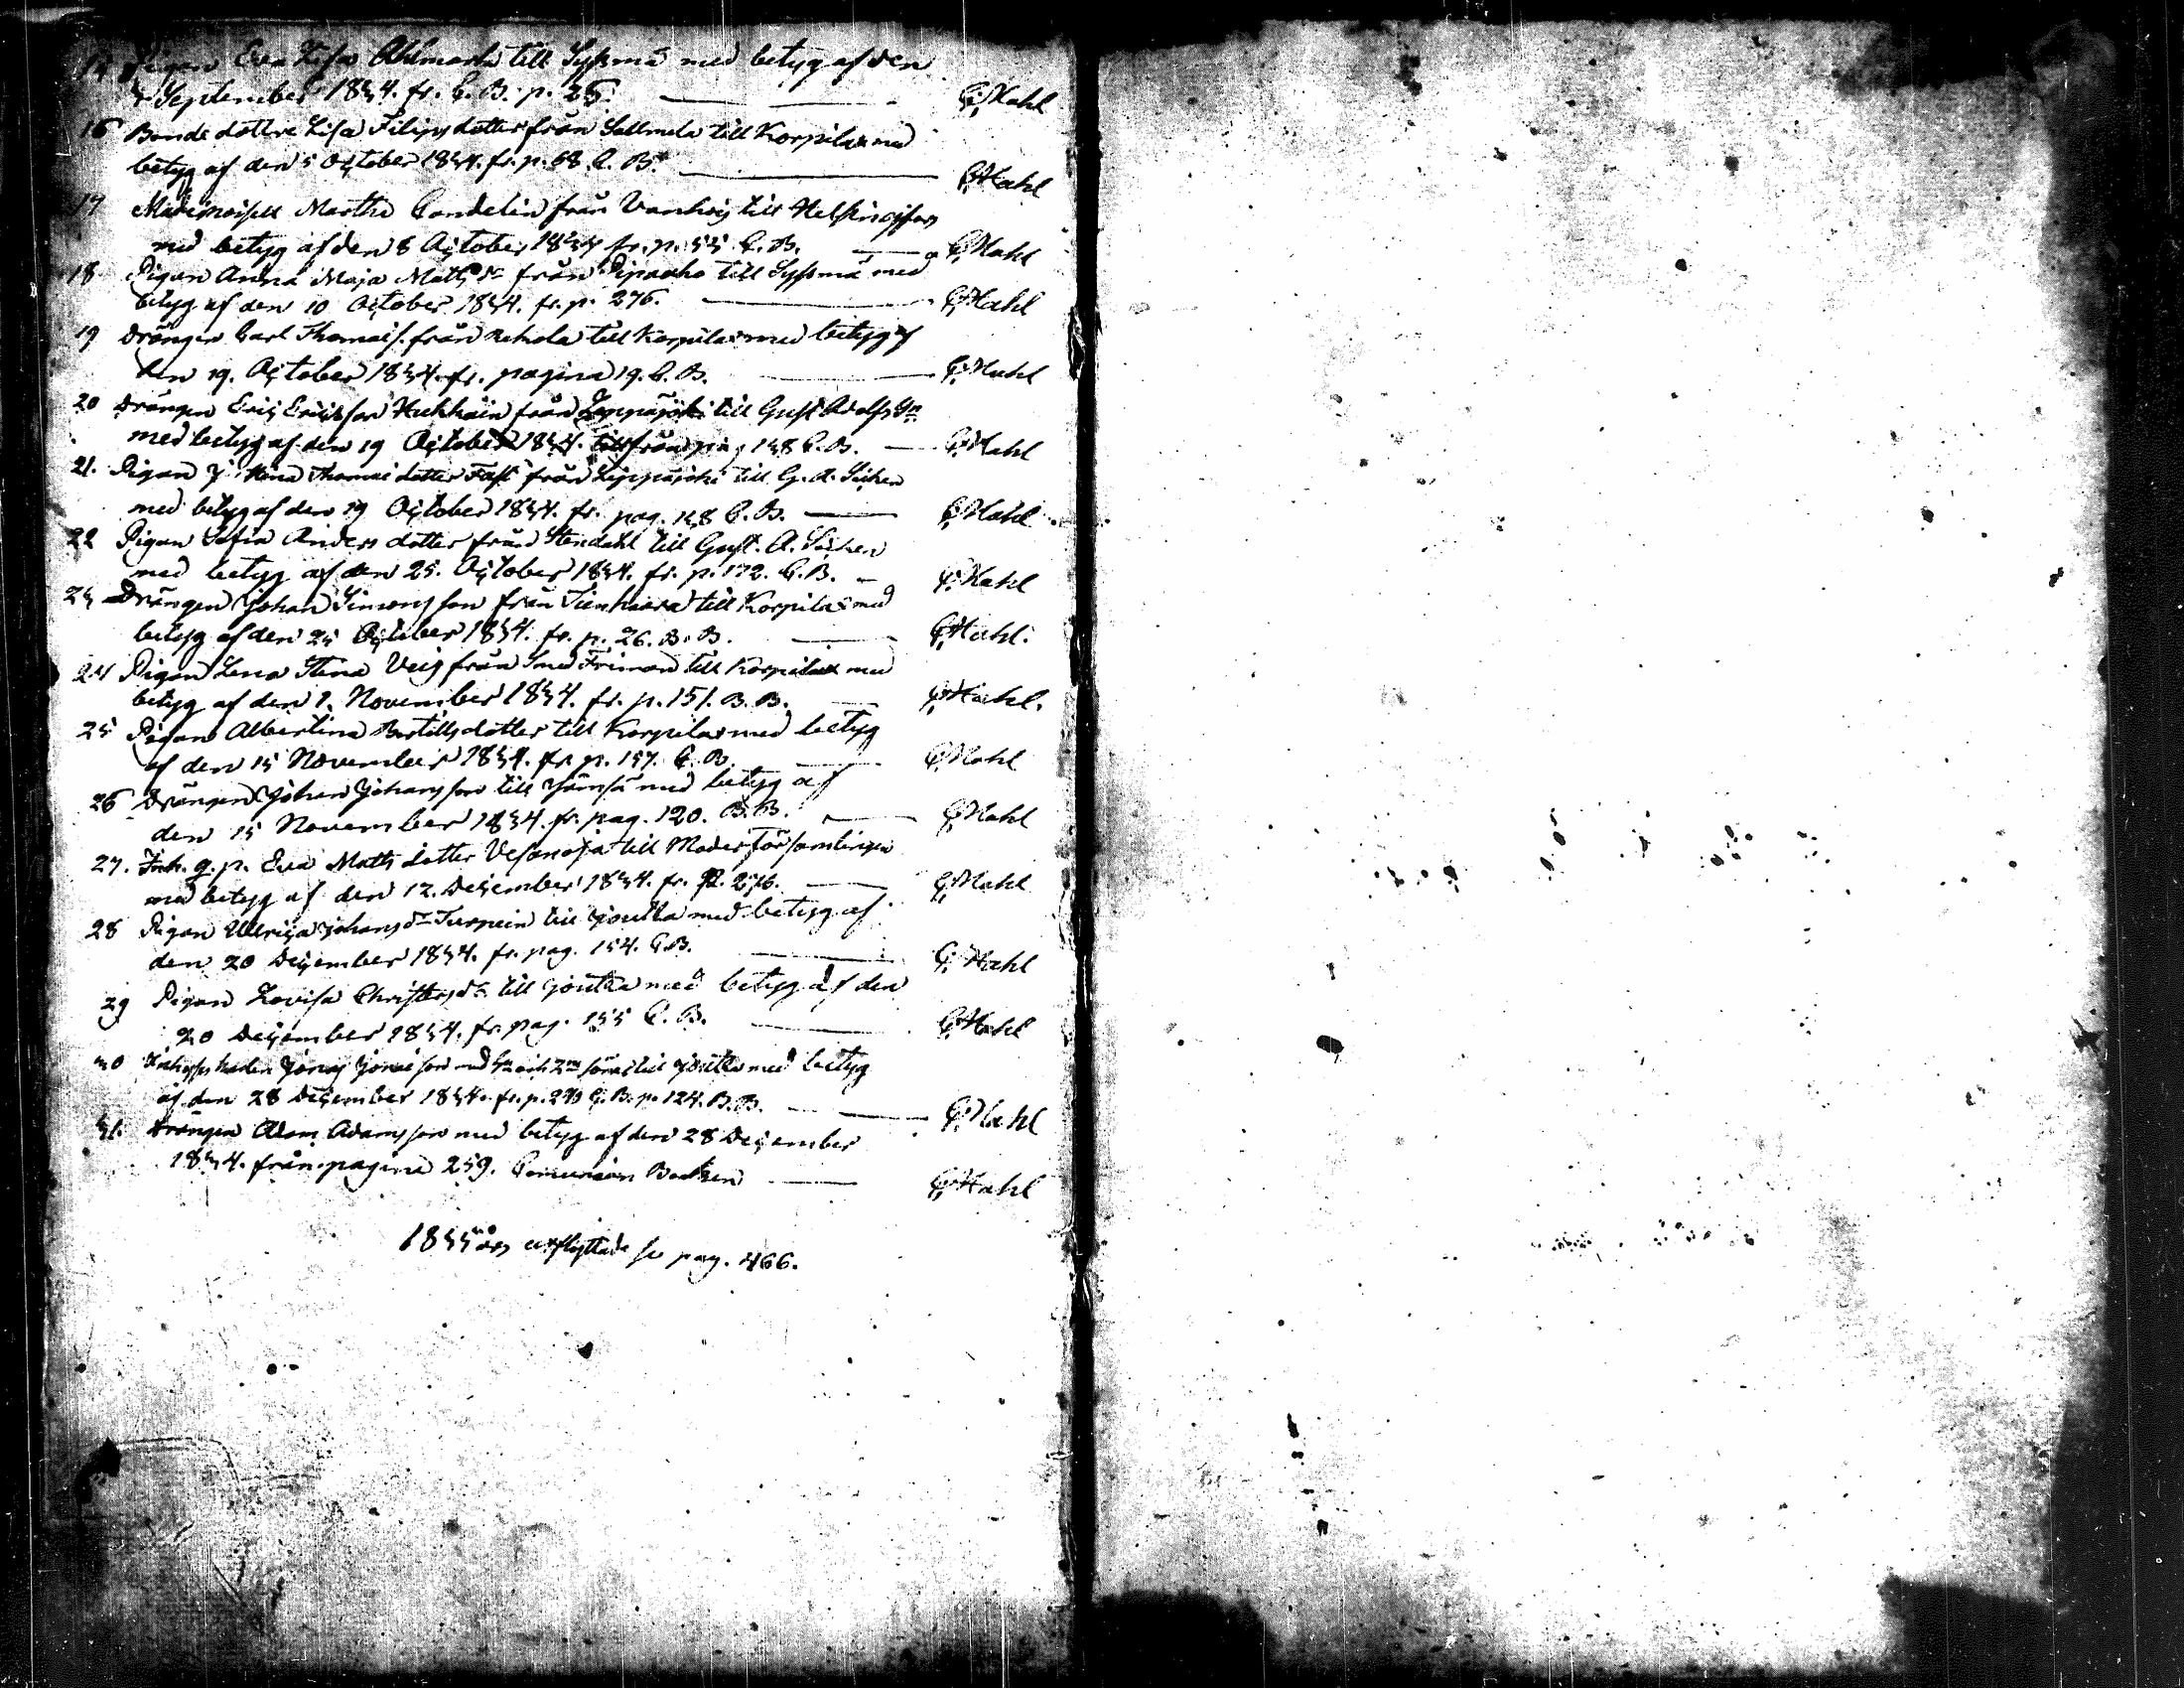 Pigan Eva Lisa Ahlmark till Sysmä med betyg af den
September 1834. fr. C. B. p. 25. C. Mahl
16 Bonde dottren Lisa Filipsdotter från Sallmela till Korpilax med
betyg af den 5 October 1834. fr. p. 68 C. B. C Mahl
17 Mademoisell Martha Candelin från Vanhoij till Helsingfors
med betyg af den 8 October 1834 fr. p. 55 C. B. C Mahl
18 Pigan Anna Maja Matts dr från till Sysmä med
betyg af den 10 October 1834. fr. p. 276. C Mahl
19 Drängen Carl Thomass. från Rekola till Korpilax med betyg af
den 19. October 1834. fr. pagina 19. C. B. C. Mahl
20 Drängen Eric Ericsson från till Gust. Adolfs Sn
med betyg af den 19 October 1834. från pag 138 C. B. C. Mahl
21. Pigan Thomasdotter från Leppäjoki till G. A. Socken
med betyg af den 19 October 1834. fr. pag. 138 C. B. C Mahl
22 Pigan Sofia Anders dotter från Stendahl till Gust. A. Socken
med betyg af den 25. October 1834. fr. p. 172. C. B. C. Mahl
23 Drängen Johan Simonsson från Sienhaara till Korpilax med
betyg af den 25 October 1834. fr. p. 26. B. B. C Mahl.
24 Pigan Lena Stina Veij från Smed Friman till Korpilax med
betyg af den 1. November 1834. fr. p. 151. B. B. C. Mahl.
25 Pigan Albertina Bertillsdotter till Korpilax med betyg
af den 15 November 1834. fr. p. 157. C. B. C Mahl
26 Drängen Johan Johansson till Jämsä med betyg af
den 15 November 1834. fr. pag. 120. B. B. C. Mahl
27. Inh. g. p. Eva Matts dotter Vesanoja till Moderförsamlingen
med betyg af den 12. December 1834. fr. p. 276. C Mahl
28 Pigan Ullrica Johans dr Turpein till Joutsa med betyg af
den 20 December 1834. fr. pag. 154. C. B. C. Mahl
29 Pigan Lovisa Christers dr till Joutsa med betyg af den
20 December 1834. fr. pag. 155 C. B. C Mahl
30 Jonas Jonasson med och 2ne söner till Joutsa med betyg
af den 28 December 1834. fr. p. C. B. p. 124. B. B. C. Mahl
31. Drängen Adam Adamsson med betyg af den 28 December
1834. från pagina 259. Comunion Boken C Mahl
1835 års utflyttade se pag. 466.